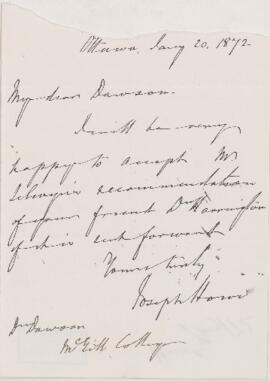 Ottawa, Jany 20. 1872
My dear Dawson.
I will be very
happy to accept Mr
Selwyn's recommendation
of your friend Dr Harrington
if it is sent forward
Yours truly
Joseph Howe
Dr Dawson
McGill College